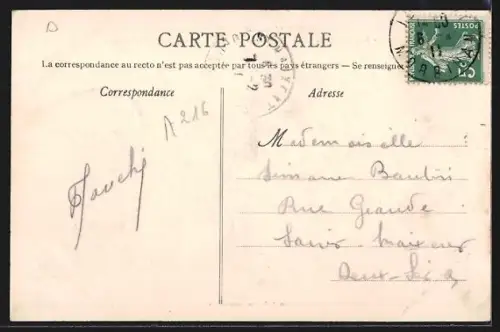 D
CARTE POSTALE
La correspondance au recto n'est pas acceptée par tous les pays étrangers — Se renseigner
Correspondance
Adresse
A 216
Mademoiselle
Simone
Rue Grande
Saint Maixent
Deux-Sèv
POSTES
5c